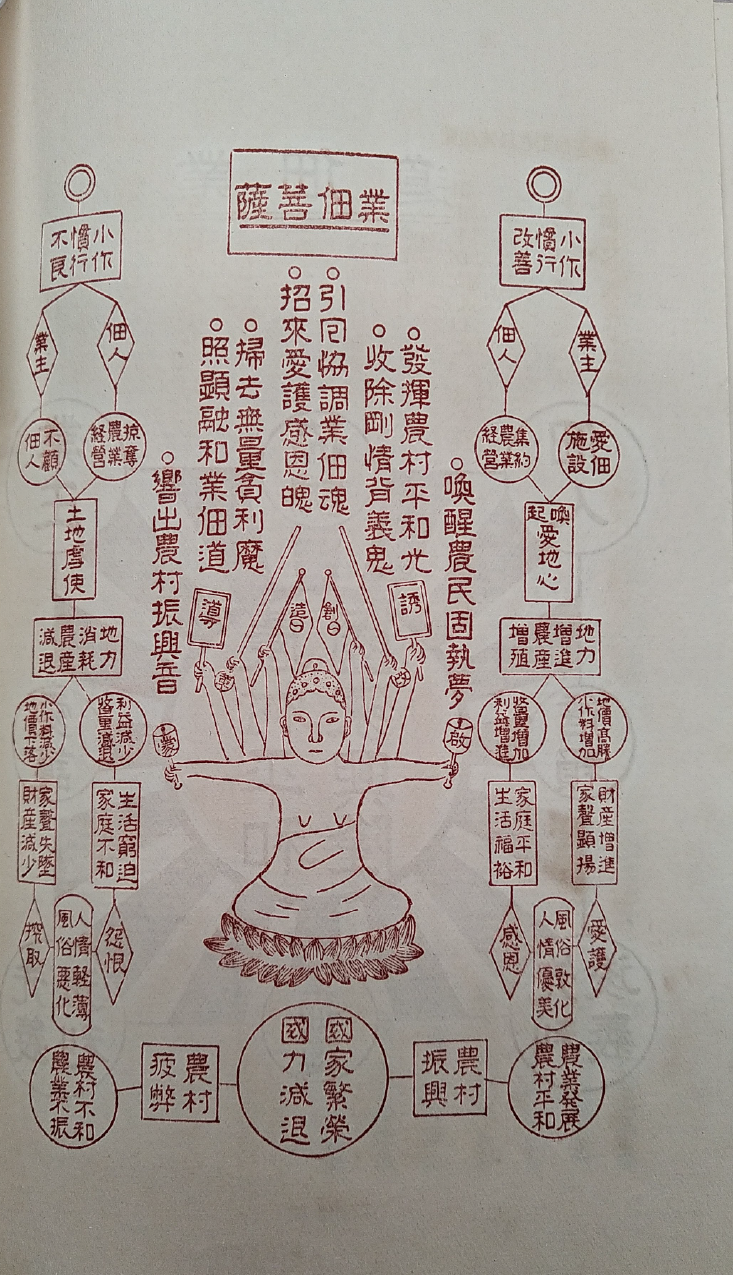 業佃善薩
喚醒農民固執夢
發揮農村平和光
收除剛情背義鬼
引回協調業佃魂
招來愛護感恩魄
掃去無量貪利魔
照顯融和業佃道
響出農村振興音
小作
慣行
改善
業主
佃人
愛佃
施設
集約
農業
経營
喚起
愛地心
地力
增進
農産
增殖
地價高騰
小作料增加
收量增加
利益增進
財産增進
家聲顯揚
家庭平和
生活福裕
愛護
風俗敦化
人情優美
感恩
農業發展
農村平和
農村
振興
誘
導
創
造
啟
蒙
國家繁榮
國力減退
小作
慣行
不良
佃人
業主
掠奪
農業
経營
不顧
佃人
土地虐使
地力
消耗
農産
減退
利益減少
收量減退
小作料減少
地價下落
生活窮迫
家庭不和
家聲失墜
財産減少
怨恨
人情軽薄
風俗悪化
搾取
農村
疲弊
農村不和
農業不振